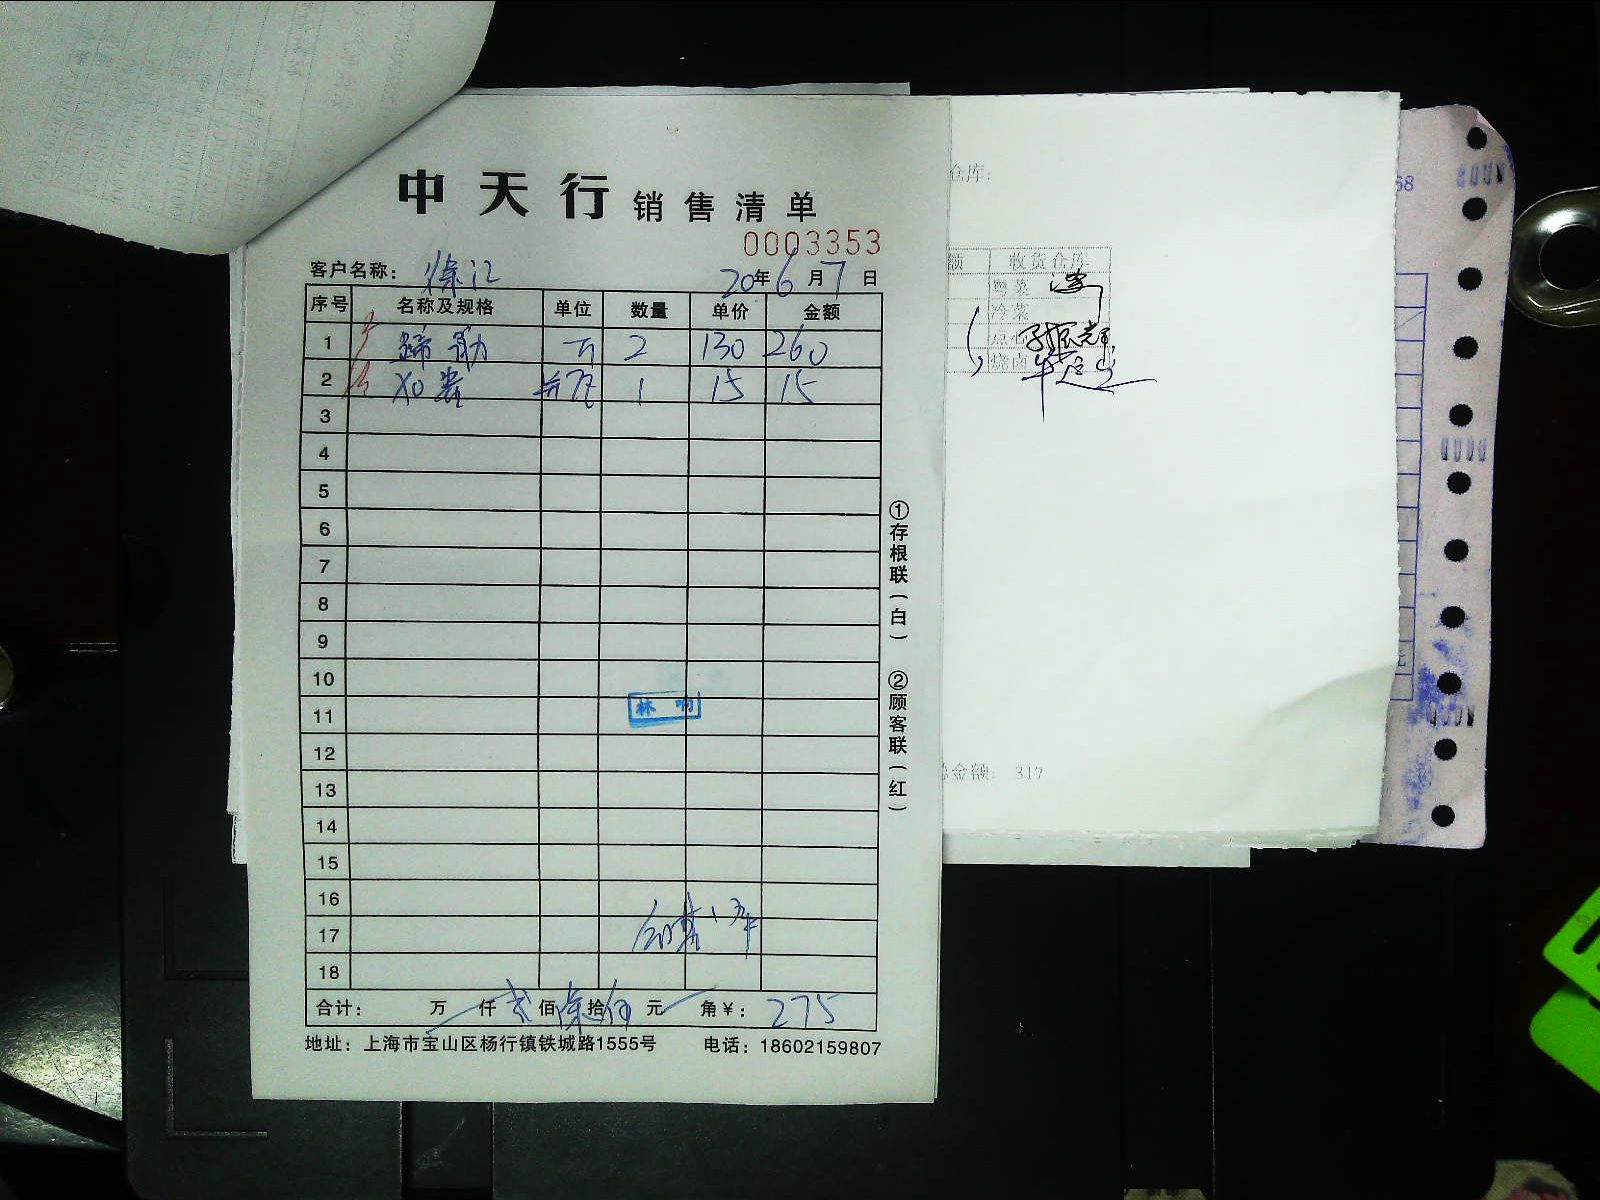 中天行 销售清单
0003353
客户名称： 徐汇
20年6月7日
序号 名称及规格 单位 数量 单价 金额
1 蹄筋 斤 2 130 260
2 XO酱 瓶 1 15 15
3
4
5
6
7
8
9
10
11
12
13
14
15
16
17
18
林 响
合计： 万 仟 贰 佰 拾 元 角 ¥： 275
地址：上海市宝山区杨行镇铁城路1555号 电话：18602159807
①存根联（白） ②顾客联（红）
仓库：
额 收货仓库
粤菜
冷菜
点心
烧卤
总金额： 317
68